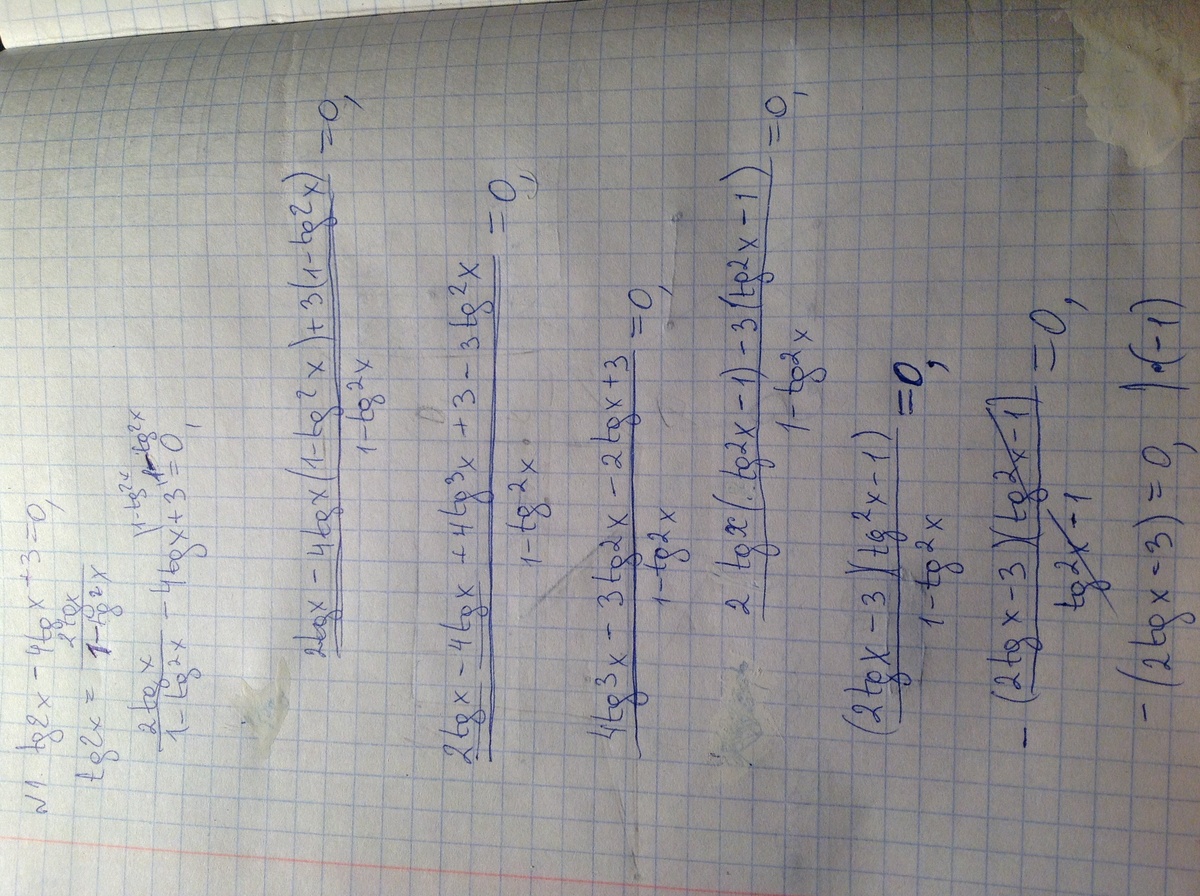 №1 tg2x - 4tgx + 3 = 0,
tg2x = 2tgx / 1-tg²x
2tgx / 1-tg²x - 4tgx \1-tg²x + 3 \1-tg²x = 0,
2tgx - 4tgx(1-tg²x) + 3(1-tg²x) / 1-tg²x = 0,
2tgx - 4tgx + 4tg³x + 3 - 3tg²x / 1-tg²x = 0,
4tg³x - 3tg²x - 2tgx + 3 / 1-tg²x = 0,
2tgx(tg²x - 1) - 3(tg²x - 1) / 1-tg²x = 0,
(2tgx - 3)(tg²x - 1) / 1-tg²x = 0,
- (2tgx - 3)(tg²x - 1) / tg²x - 1 = 0,
- (2tgx - 3) = 0, |·(-1)